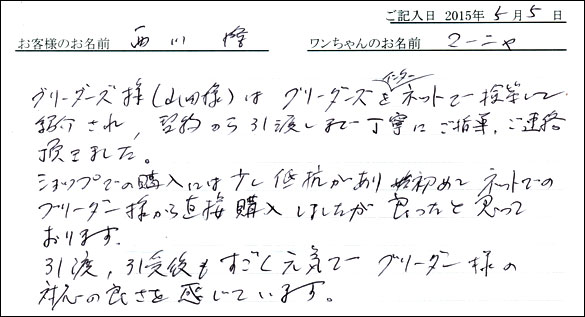 ご記入日 2015年 5月 5日
お客様のお名前 西川 ワンちゃんのお名前 マーニャ
ブリーダーズ様(山田様)は ブリーダーズをインターネットで検索して
紹介され、契約から引渡しまで丁寧にご指導、ご連絡
頂きました。
ショップでの購入には少し低抗があり 初めてネットでの
ブリーダー様から直接購入しましたが 良ったと思って
おります。
引渡、引受後もすごく元気で ブリーダー様の
対応の良さを感じています。